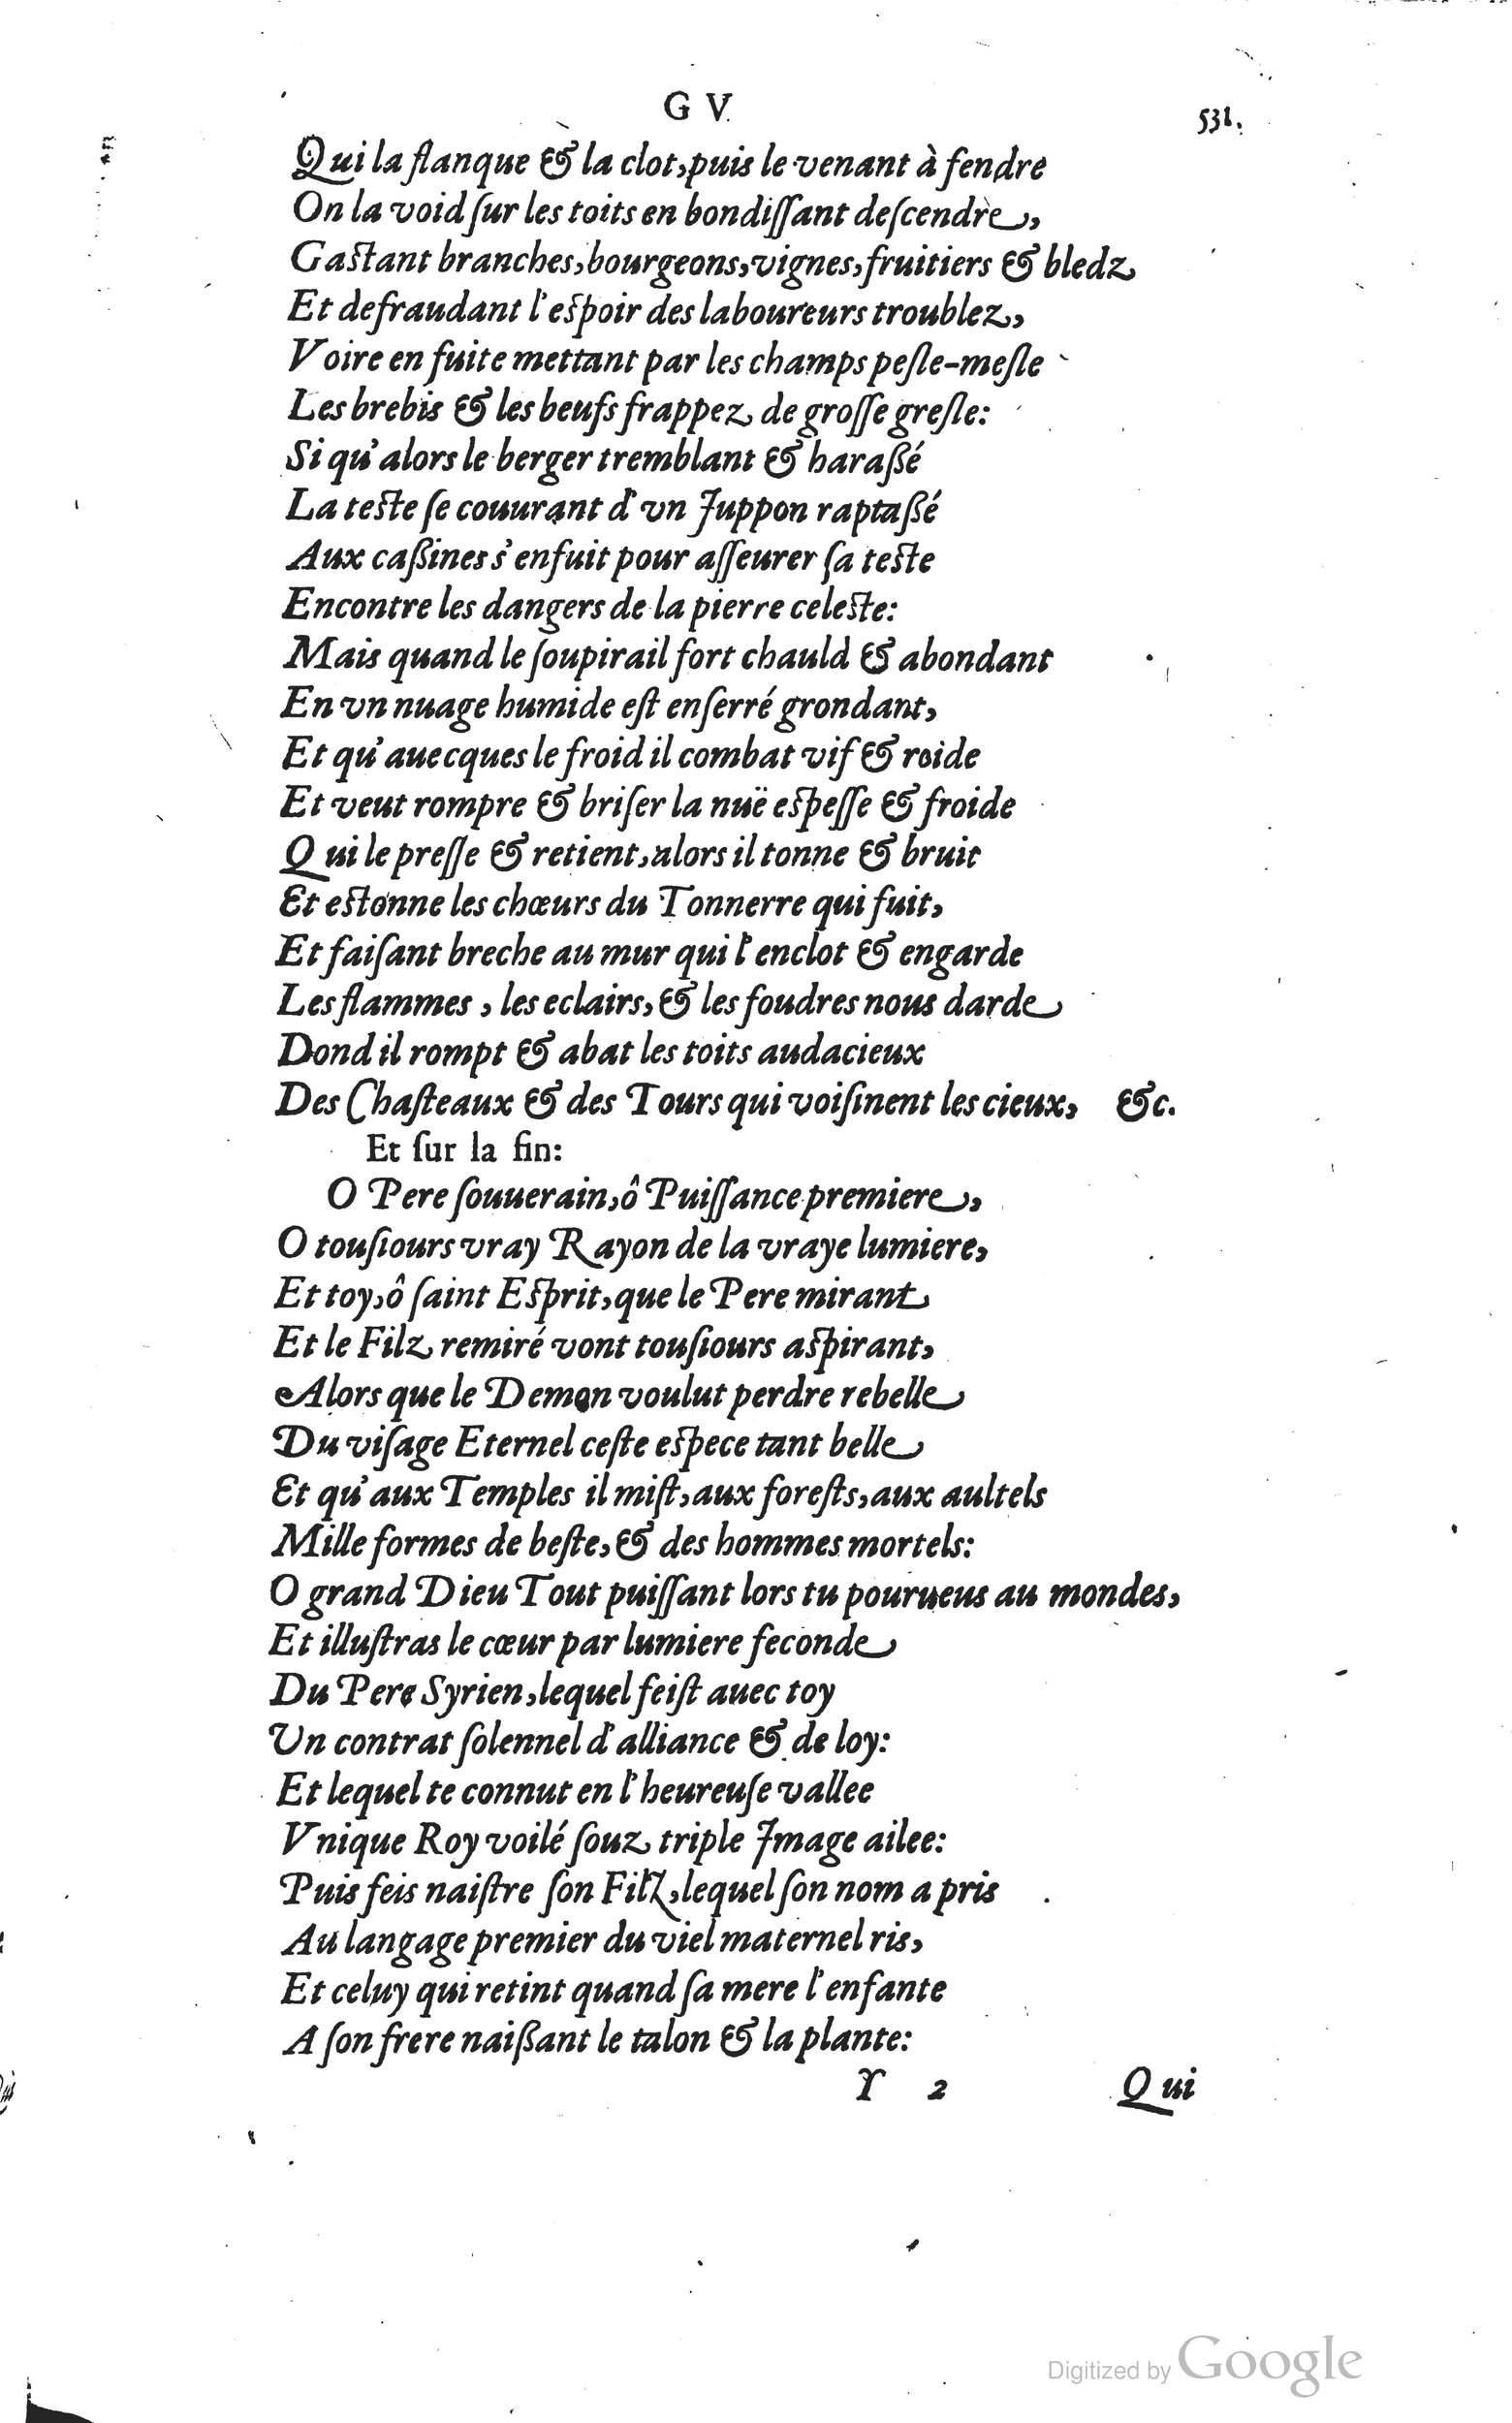 G V.
531.
Qui la flanque & la clot, puis le venant à fendre
On la void ſur les toits en bondiſſant deſcendre,
Gaſtant branches, bourgeons, vignes, fruitiers & bledz
Et defraudant l'eſpoir des laboureurs troublez,
Voire en fuite mettant par les champs peſle-meſle
Les brebis & les beufs frappez de groſſe greſle:
Si qu'alors le berger tremblant & haraßé
La teſte ſe couurant d'vn Juppon raptaßé
Aux caßines s'enfuit pour aſſeurer ſa teſte
Encontre les dangers de la pierre celeſte:
Mais quand le ſoupirail fort chauld & abondant
En vn nuage humide eſt enſerré grondant,
Et qu'auecques le froid il combat vif & roide
Et veut rompre & briſer la nuë eſpeſſe & froide
Qui le preſſe & retient, alors il tonne & bruit
Et eſtonne les chœurs du Tonnerre qui fuit,
Et faiſant breche au mur qui l'enclot & engarde
Les flammes, les eclairs, & les foudres nous darde
Dond il rompt & abat les toits audacieux
Des Chaſteaux & des Tours qui voiſinent les cieux, &c.
Et ſur la fin:
O Pere ſouuerain, ô Puiſſance premiere,
O touſiours vray Rayon de la vraye lumiere,
Et toy, ô ſaint Eſprit, que le Pere mirant
Et le Filz remiré vont touſiours aſpirant,
Alors que le Demon voulut perdre rebelle
Du viſage Eternel ceſte eſpece tant belle
Et qu'aux Temples il miſt, aux foreſts, aux aultels
Mille formes de beſte, & des hommes mortels:
O grand Dieu Tout puiſſant lors tu pourueus au mondes,
Et illuſtras le cœur par lumiere feconde
Du Pere Syrien, lequel feiſt auec toy
Un contrat ſolennel d'alliance & de loy:
Et lequel te connut en l'heureuſe vallee
Vnique Roy voilé ſouz triple Image ailee:
Puis feis naiſtre ſon Filz, lequel ſon nom a pris
Au langage premier du viel maternel ris,
Et celuy qui retint quand ſa mere l'enfante
A ſon frere naißant le talon & la plante:
Y 2
Qui
Digitized by Google